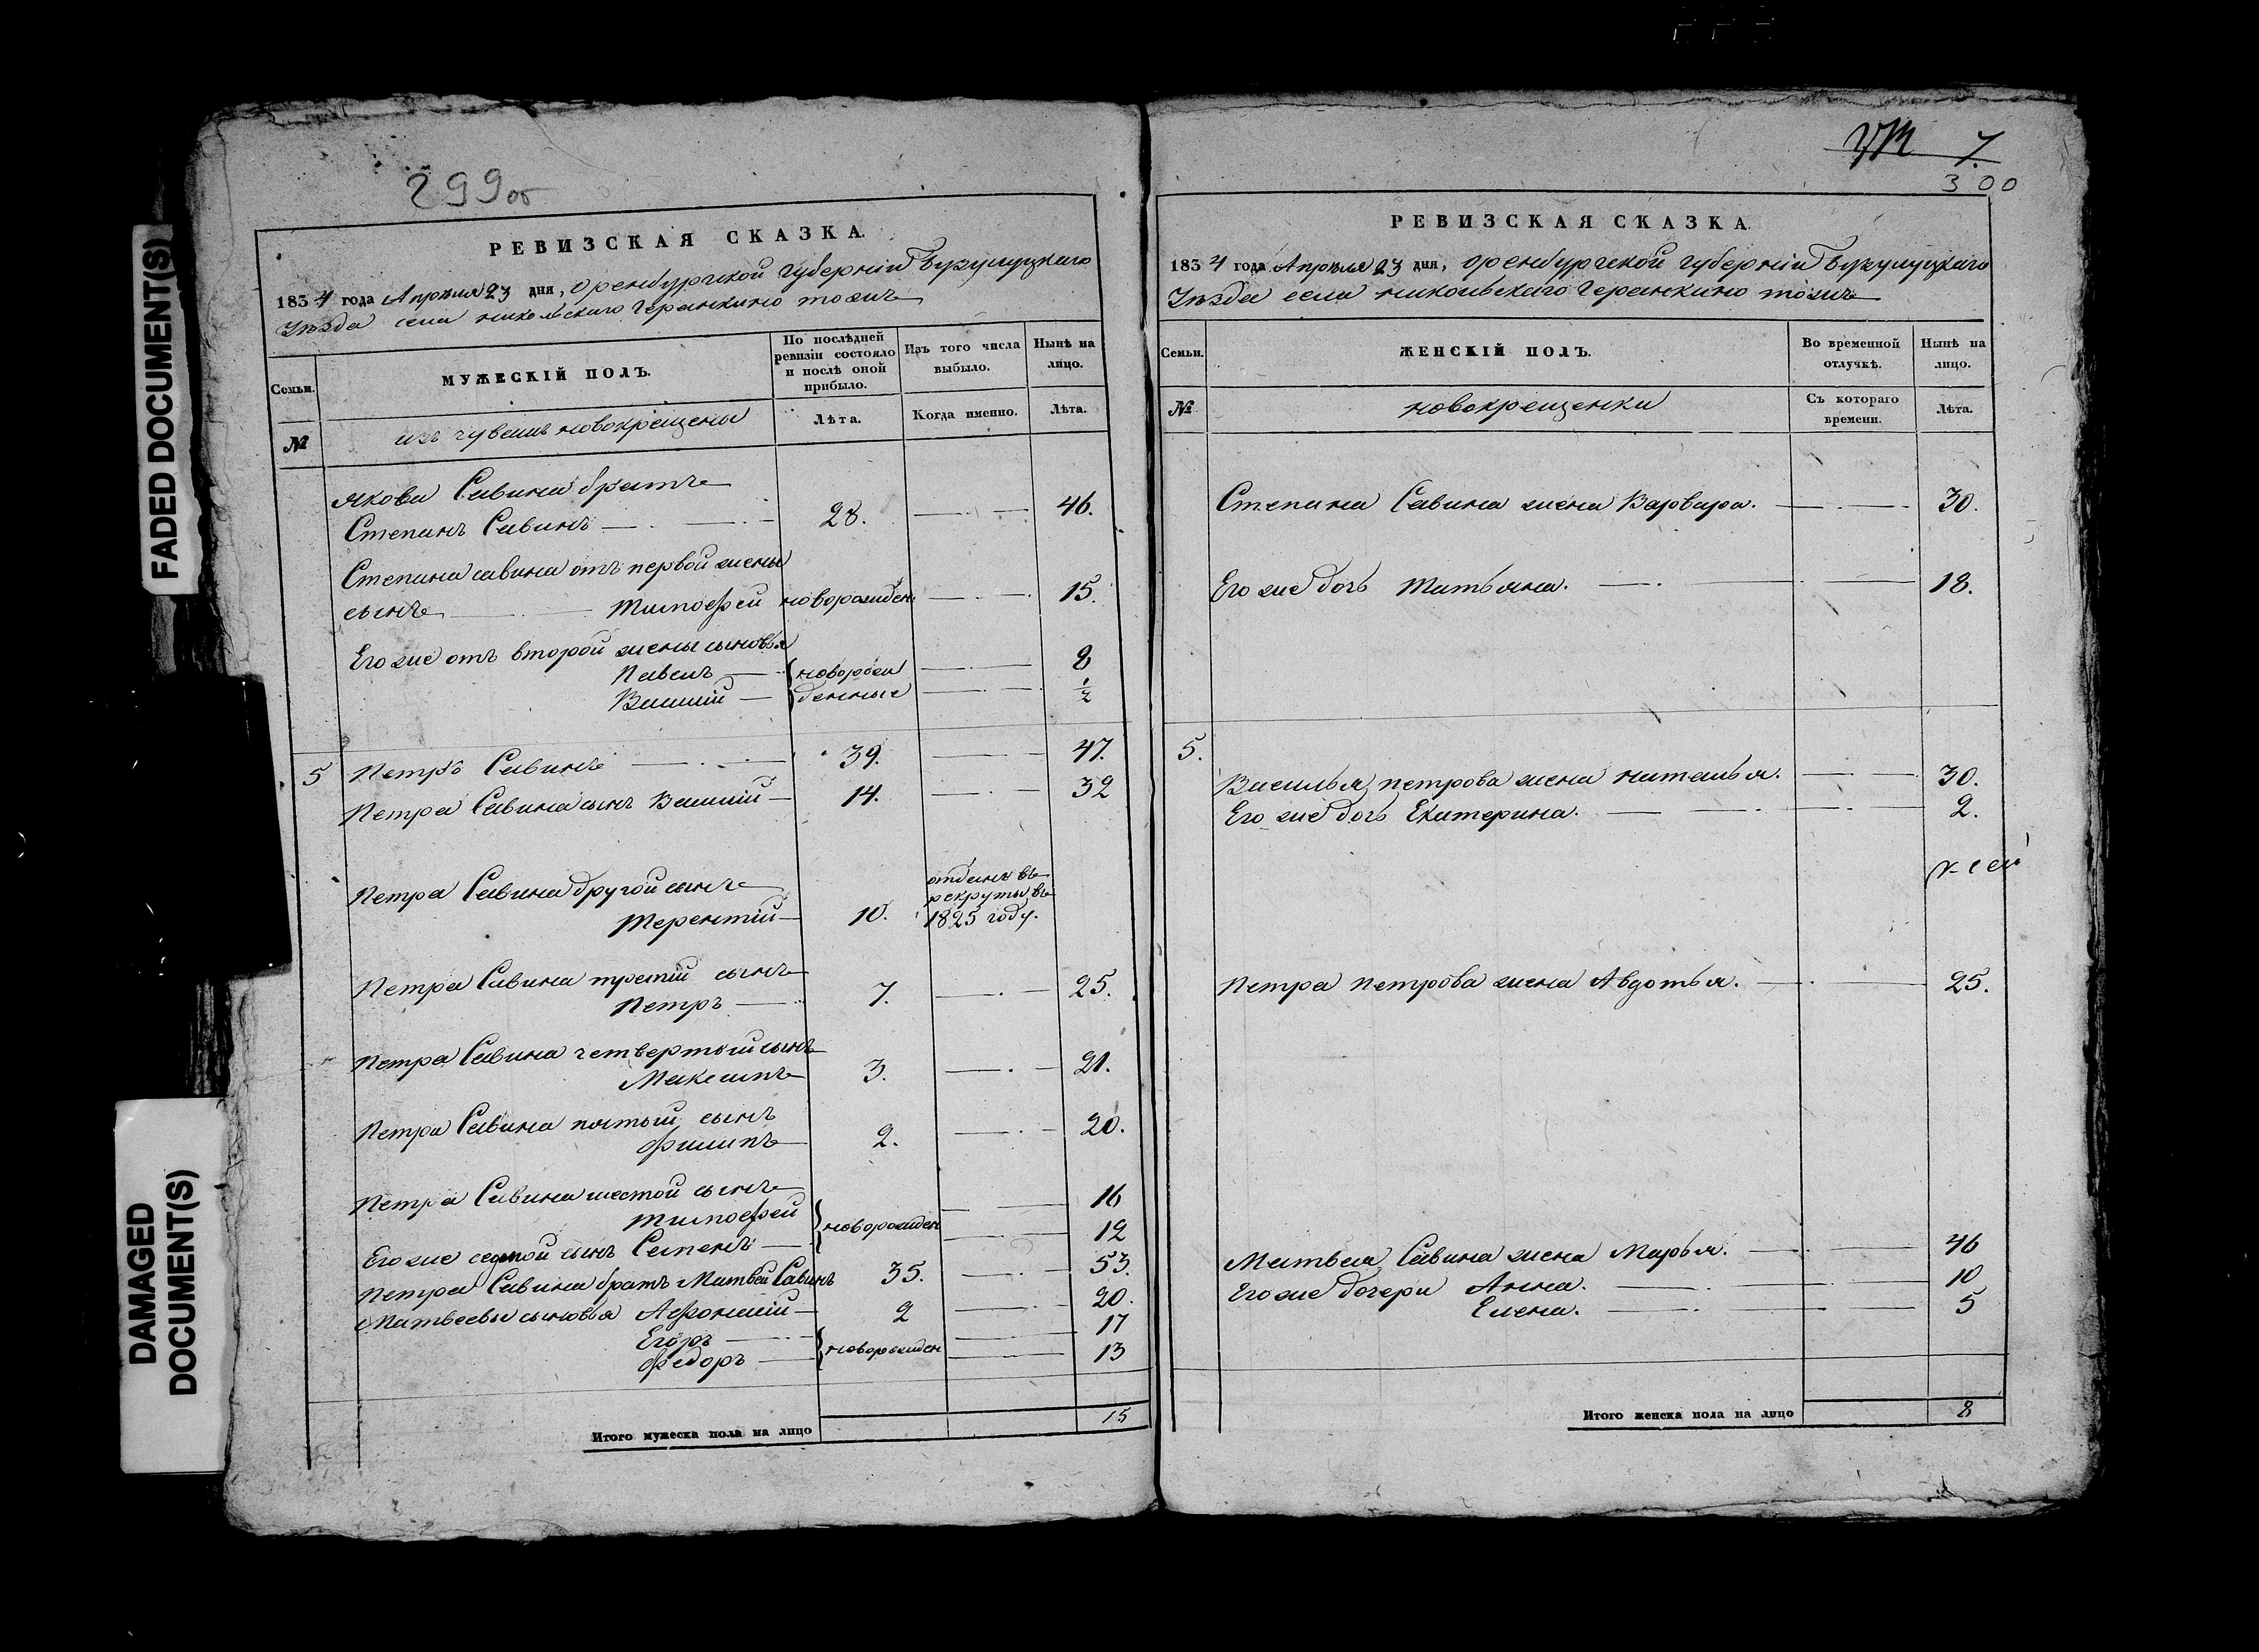 FADED DOCUMENT(S)
DAMAGED DOCUMENT(S)
299об
РЕВИЗСКАЯ СКАЗКА.
1834 года Апрѣля 23 дня, Оренбургской губерніи Бузулуцкаго
Уѣзда села Никольскаго Геранкино тожъ
Семьи.
МУЖЕСКІЙ ПОЛЪ.
По послѣдней ревизіи состояло и послѣ оной прибыло.
Изъ того числа выбыло.
Нынѣ на лицо.
№
изъ чувашъ новокрещены
Лѣта.
Когда именно.
Лѣта.
Якова Савина братъ
Степанъ Савинъ 28. 46.
Степана Савина отъ первой жены
сынъ Тимофей новорожден 15.
Его же отъ второй жены сыновья
Павелъ новорож 8
Василій денные 1/2
5 Петръ Савинъ 39. 47.
Петра Савина сынъ Василій 14. 32
Петра Савина другой сынъ
Терентій 10. отданъ въ рекруты въ 1825 году.
Петра Савина третій сынъ
Петръ 7. 25.
Петра Савина четвертый сынъ
Максимъ 3. 21.
Петра Савина пятый сынъ
Филипъ 2. 20.
Петра Савина шестой сынъ
Тимофей новорожден 16
Его же седмой сынъ Семенъ 12
Петра Савина братъ Матвей Савинъ 35. 53.
Матвеевы сыновья Афонасій 2 20.
Егоръ новорожден 17
Федоръ 13
Итого мужеска пола на лицо 15
7.
300
РЕВИЗСКАЯ СКАЗКА.
1834 года Апрѣля 23 дня, Оренбургской губерніи Бузулуцкаго
Уѣзда села Никольскаго Геранкино тожъ
Семьи.
ЖЕНСКІЙ ПОЛЪ.
Во временной отлучкѣ.
Нынѣ на лицо.
№
новокрещенки
Съ котораго времени.
Лѣта.
Степана Савина жена Варвара. 30.
Его же дочь Татьяна. 18.
5.
Василья Петрова жена Наталья. 30.
Его же дочь Екатерина. 2.
Петра Петрова жена Авдотья. 25.
Матвея Савина жена Марья. 46
Его же дочери Анна. 10
Елена. 5
Итого женска пола на лицо 8